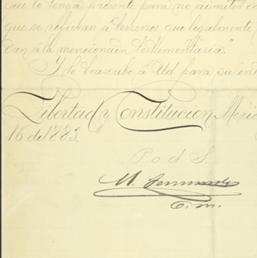 que lo tenga presente para no admitir
que se refieran á terrenos que legalmente
dan á la mencionada testamentaria."
Y lo trascribo á Ud. para su
Libertad y Constitucion. Mexi
16 de 1883.
P. o. d. S.
M. Fernandez
O. m.